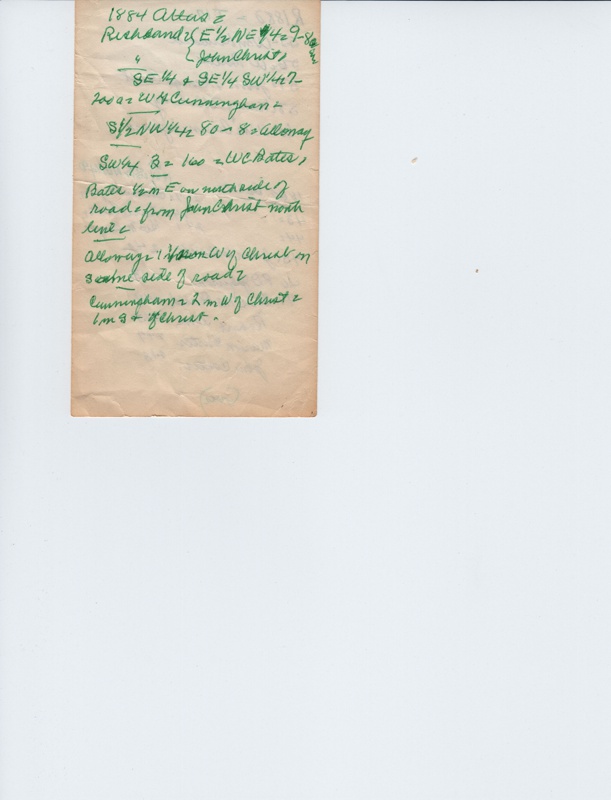 1884 Atlas =
Richland = { E 1/2 NE 1/4 = 9 - 80
{ John Christ,
" SE 1/4 & SE 1/4 SW 1/4 = 7 -
200 a = W H Cunningham =
S 1/2 NW 1/4 = 80 - 8 = Alloway
SW 1/4 3 = 160 = W C Bates,
Bates 1/2 m E on north side of
road = from John Christ north
line =
Alloway = 1 W of Christ on
same side of road =
Cunningham = 2 m W of Christ =
1 m S & of Christ -